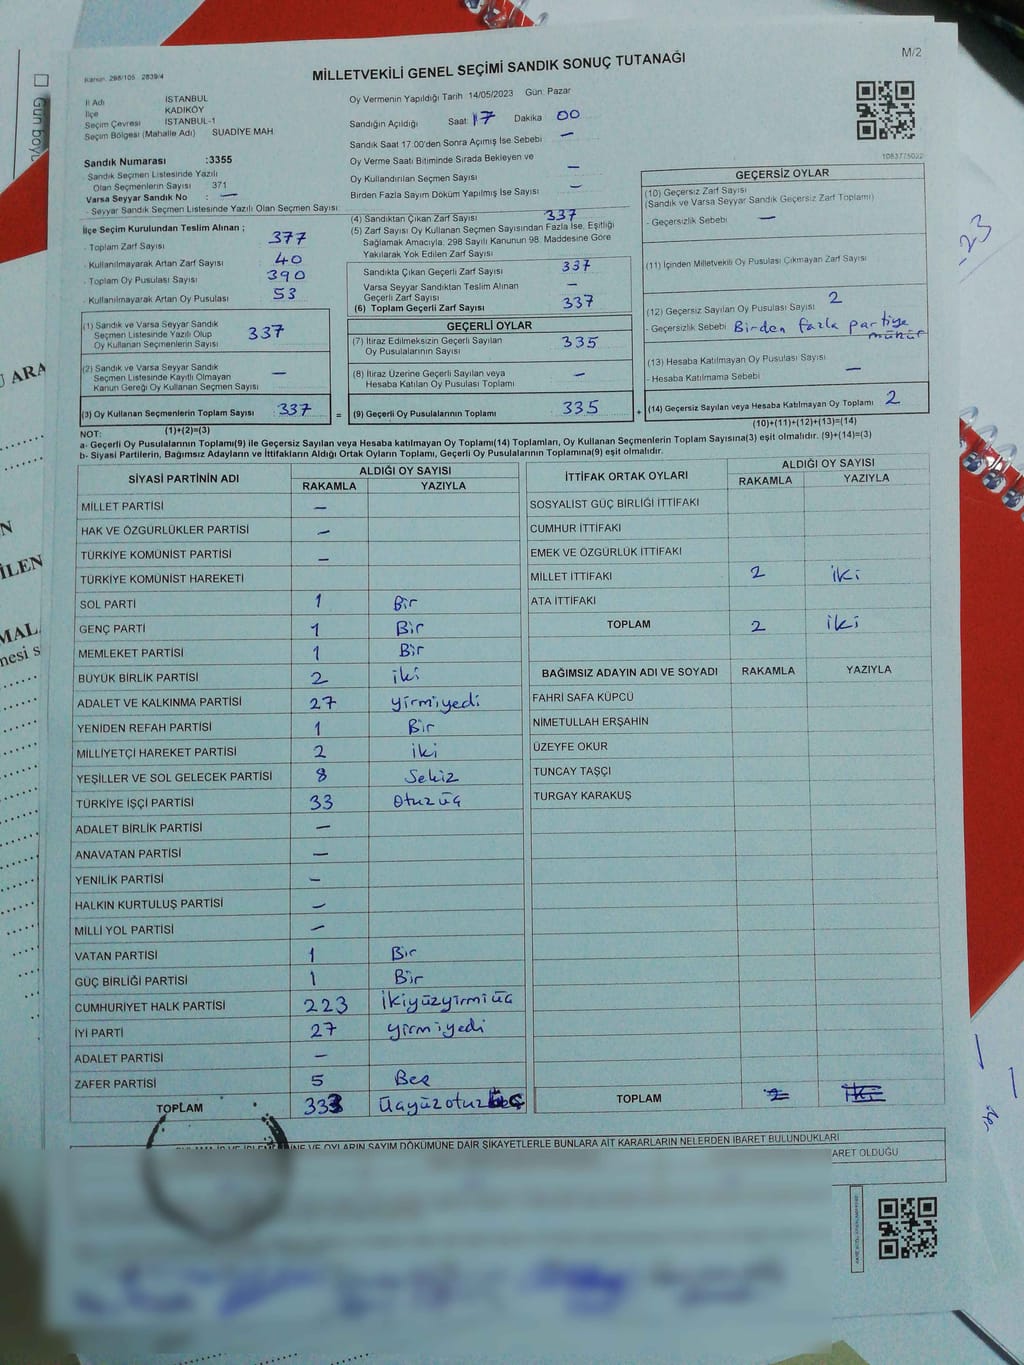 Kanun. 298/105 2839/4
MİLLETVEKİLİ GENEL SEÇİMİ SANDIK SONUÇ TUTANAĞI
M/2
İl Adı İSTANBUL
İlçe KADIKÖY
Seçim Çevresi İSTANBUL-1
Seçim Bölgesi (Mahalle Adı) SUADİYE MAH
Sandık Numarası :3355
Sandık Seçmen Listesinde Yazılı
Olan Seçmenlerin Sayısı 371
Varsa Seyyar Sandık No : —
- Seyyar Sandık Seçmen Listesinde Yazılı Olan Seçmen Sayısı:
Oy Vermenin Yapıldığı Tarih 14/05/2023 Gün: Pazar
Sandığın Açıldığı Saat: 17 Dakika 00
Sandık Saat 17.00'den Sonra Açımış İse Sebebi —
Oy Verme Saati Bitiminde Sırada Bekleyen ve
Oy Kullandırılan Seçmen Sayısı —
Birden Fazla Sayım Döküm Yapılmış İse Sayısı —
1083775032
İlçe Seçim Kurulundan Teslim Alınan ;
- Toplam Zarf Sayısı 377
- Kullanılmayarak Artan Zarf Sayısı 40
- Toplam Oy Pusulası Sayısı 390
- Kullanılmayarak Artan Oy Pusulası 53
(1) Sandık ve Varsa Seyyar Sandık
Seçmen Listesinde Yazılı Olup
Oy Kullanan Seçmenlerin Sayısı 337
(2) Sandık ve Varsa Seyyar Sandık
Seçmen Listesinde Kayıtlı Olmayan
Kanun Gereği Oy Kullanan Seçmen Sayısı —
(3) Oy Kullanan Seçmenlerin Toplam Sayısı 337
(1)+(2)=(3)
(4) Sandıktan Çıkan Zarf Sayısı 337
(5) Zarf Sayısı Oy Kullanan Seçmen Sayısından Fazla İse, Eşitliği
Sağlamak Amacıyla, 298 Sayılı Kanunun 98. Maddesine Göre
Yakılarak Yok Edilen Zarf Sayısı
Sandıkta Çıkan Geçerli Zarf Sayısı 337
Varsa Seyyar Sandıktan Teslim Alınan
Geçerli Zarf Sayısı —
(6) Toplam Geçerli Zarf Sayısı 337
GEÇERLİ OYLAR
(7) İtiraz Edilmeksizin Geçerli Sayılan
Oy Pusulalarının Sayısı 335
(8) İtiraz Üzerine Geçerli Sayılan veya
Hesaba Katılan Oy Pusulası Toplamı —
= (9) Geçerli Oy Pusulalarının Toplamı 335
GEÇERSİZ OYLAR
(10) Geçersiz Zarf Sayısı
(Sandık ve Varsa Seyyar Sandık Geçersiz Zarf Toplamı)
- Geçersizlik Sebebi —
(11) İçinden Milletvekili Oy Pusulası Çıkmayan Zarf Sayısı
(12) Geçersiz Sayılan Oy Pusulası Sayısı 2
- Geçersizlik Sebebi Birden fazla partiye
mühür
(13) Hesaba Katılmayan Oy Pusulası Sayısı —
- Hesaba Katılmama Sebebi
+ (14) Geçersiz Sayılan veya Hesaba Katılmayan Oy Toplamı 2
(10)+(11)+(12)+(13)=(14)
NOT:
a- Geçerli Oy Pusulalarının Toplamı(9) ile Geçersiz Sayılan veya Hesaba katılmayan Oy Toplamı(14) Toplamları, Oy Kullanan Seçmenlerin Toplam Sayısına(3) eşit olmalıdır. (9)+(14)=(3)
b- Siyasi Partilerin, Bağımsız Adayların ve İttifakların Aldığı Ortak Oyların Toplamı, Geçerli Oy Pusulalarının Toplamına(9) eşit olmalıdır.
SİYASİ PARTİNİN ADI ALDIĞI OY SAYISI
RAKAMLA YAZIYLA
MİLLET PARTİSİ —
HAK VE ÖZGÜRLÜKLER PARTİSİ —
TÜRKİYE KOMÜNİST PARTİSİ —
TÜRKİYE KOMÜNİST HAREKETİ
SOL PARTİ 1 Bir
GENÇ PARTİ 1 Bir
MEMLEKET PARTİSİ 1 Bir
BÜYÜK BİRLİK PARTİSİ 2 iki
ADALET VE KALKINMA PARTİSİ 27 yirmiyedi
YENİDEN REFAH PARTİSİ 1 Bir
MİLLİYETÇİ HAREKET PARTİSİ 2 iki
YEŞİLLER VE SOL GELECEK PARTİSİ 8 Sekiz
TÜRKİYE İŞÇİ PARTİSİ 33 Otuzüç
ADALET BİRLİK PARTİSİ —
ANAVATAN PARTİSİ —
YENİLİK PARTİSİ —
HALKIN KURTULUŞ PARTİSİ —
MİLLİ YOL PARTİSİ —
VATAN PARTİSİ 1 Bir
GÜÇ BİRLİĞİ PARTİSİ 1 Bir
CUMHURİYET HALK PARTİSİ 223 ikiyüzyirmiüç
İYİ PARTİ 27 yirmiyedi
ADALET PARTİSİ —
ZAFER PARTİSİ 5 Beş
TOPLAM 333
İTTİFAK ORTAK OYLARI ALDIĞI OY SAYISI
RAKAMLA YAZIYLA
SOSYALİST GÜÇ BİRLİĞİ İTTİFAKI
CUMHUR İTTİFAKI
EMEK VE ÖZGÜRLÜK İTTİFAKI
MİLLET İTTİFAKI 2 iki
ATA İTTİFAKI
TOPLAM 2 iki
BAĞIMSIZ ADAYIN ADI VE SOYADI RAKAMLA YAZIYLA
FAHRİ SAFA KÜPCÜ
NİMETULLAH ERŞAHİN
ÜZEYFE OKUR
TUNCAY TAŞÇI
TURGAY KARAKUŞ
TOPLAM
İNE VE OYLARIN SAYIM DÖKÜMÜNE DAİR ŞİKAYETLERLE BUNLARA AİT KARARLARIN NELERDEN İBARET BULUNDUKLARI
ARET OLDUĞU
Gün boyu
ARA
N
İLEN
MAL
nesi s
-23